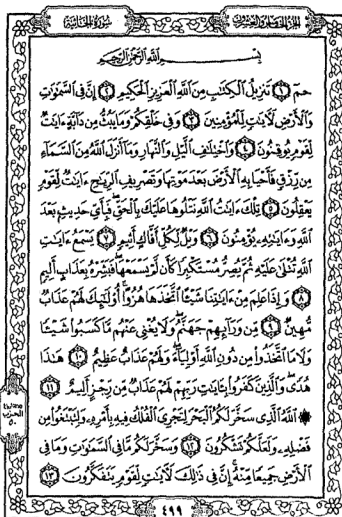 الجزء الخامس والعشرون
سورة الجاثية
بسم الله الرحمن الرحيم
حم ١ تنزيل الكتٰب من الله العزيز الحكيم ٢ إن في السمٰوٰت
والأرض لأيٰت للمؤمنين ٣ وفي خلقكم وما يبث من دابة ءايٰت
لقوم يوقنون ٤ واختلٰف اليل والنهار وما أنزل الله من السماء
من رزق فأحيا به الأرض بعد موتها وتصريف الريٰح ءايٰت لقوم
يعقلون ٥ تلك ءايٰت الله نتلوها عليك بالحق فبأي حديث بعد
الله وءايٰته يؤمنون ٦ ويل لكل أفاك أثيم ٧ يسمع ءايٰت
الله تتلى عليه ثم يصر مستكبرا كأن لم يسمعها فبشره بعذاب أليم
٨ وإذا علم من ءايٰتنا شيئا اتخذها هزوا أولٰئك لهم عذاب
مهين ٩ من ورائهم جهنم ولا يغني عنهم ما كسبوا شيئا
ولا ما اتخذوا من دون الله أولياء ولهم عذاب عظيم ١٠ هٰذا
هدى والذين كفروا بـٔايٰت ربهم لهم عذاب من رجز أليم ١١
۞ الله الذي سخر لكم البحر لتجري الفلك فيه بأمره ولتبتغوا من
فضله ولعلكم تشكرون ١٢ وسخر لكم ما في السمٰوٰت وما في
الأرض جميعا منه إن في ذٰلك لأيٰت لقوم يتفكرون ١٣
الحزب
٥٠
٤٩٩